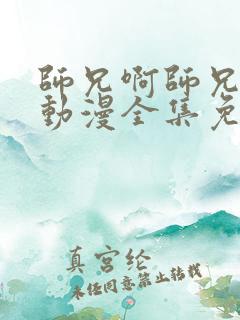 師兄啊師兄
動漫全集免
真宫纶
未经同意禁止转载